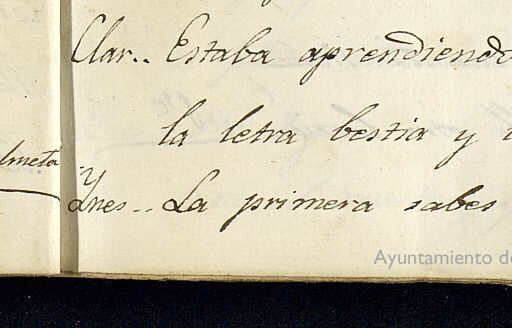 Clar.. Estaba aprendiendo
la letra bestia y
lmeta
Ynes.. La primera sabes
Ayuntamiento de